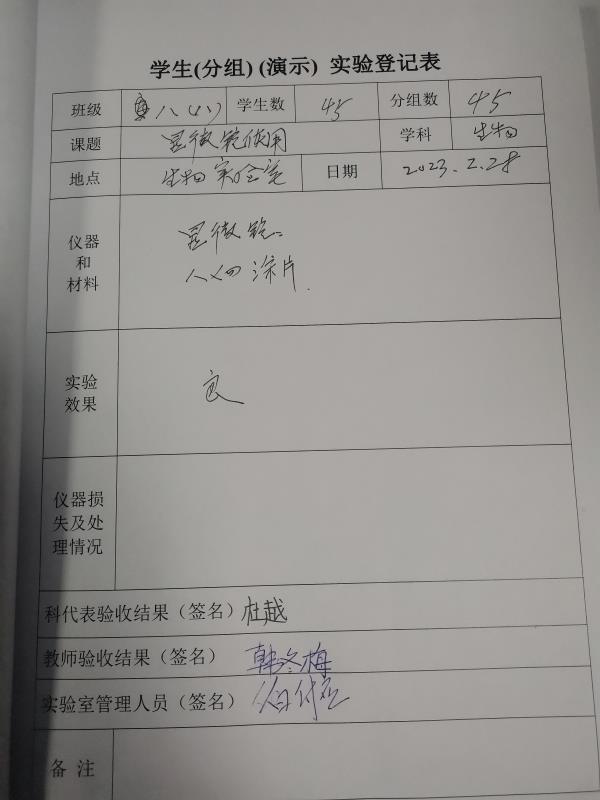 学生(分组) (演示) 实验登记表
班级 八(八) 学生数 45 分组数 45
课题 显微镜使用 学科 生物
地点 生物实验室 日期 2023.2.28
仪器
和
材料
显微镜
人 涂片
实验
效果
良
仪器损
失及处
理情况
科代表验收结果（签名）杜越
教师验收结果（签名） 韩冬梅
实验室管理人员（签名）
备 注